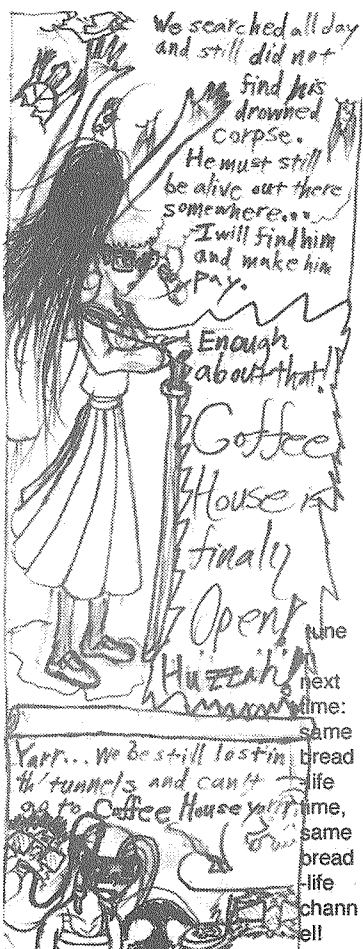 We searched all day
and still did not
find his
drowned
corpse.
He must still
be alive out there
somewhere...
I will find him
and make him
pay.
Enough
about that!
Coffee
House is
finally
Open!
Huzzah!
Yarr... We be still lost in
th' tunnels and can't
go to Coffee House
tune
next
time:
same
bread
-life
time,
same
bread
-life
chann
el!